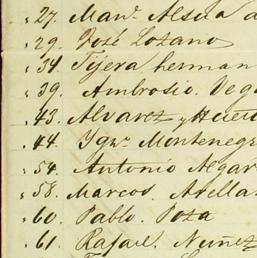 " 27. Man.l Alsua a
" 29. José Lozano
" 34. Tijera herman
" 39. Ambrosio. Vega
" 43. Alvarez y
" 44. Ygn.o Montenegr
" 54. Antonio Algar
" 58. Marcos. Arella
" 60. Pablo. Poza
" 61. Rafael. Nuñez